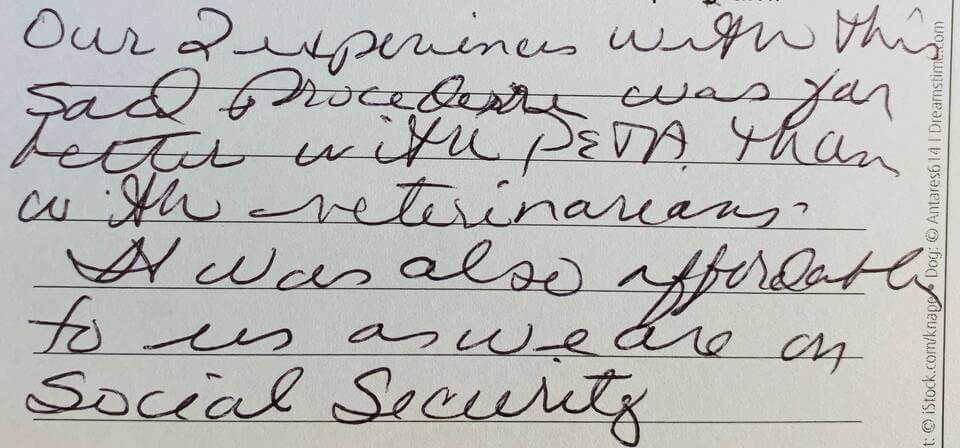 Our 2 experiences with this
sad procedure was far
better with PETA than
with veterinarians.
It was also affordable
to us as we are on
Social Security
t: © iStock.com/knape • Dog: © Antares614 | Dreamstime.com